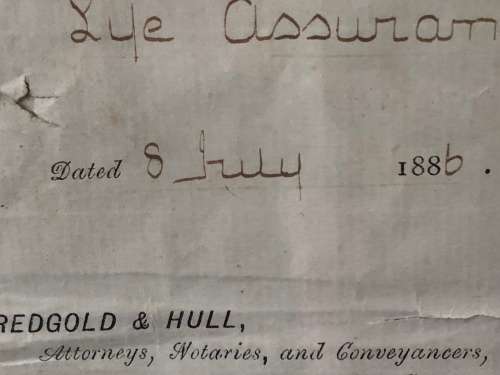 Life Assuran
Dated 8 July 1886.
REDGOLD & HULL,
Attorneys, Notaries, and Conveyancers,